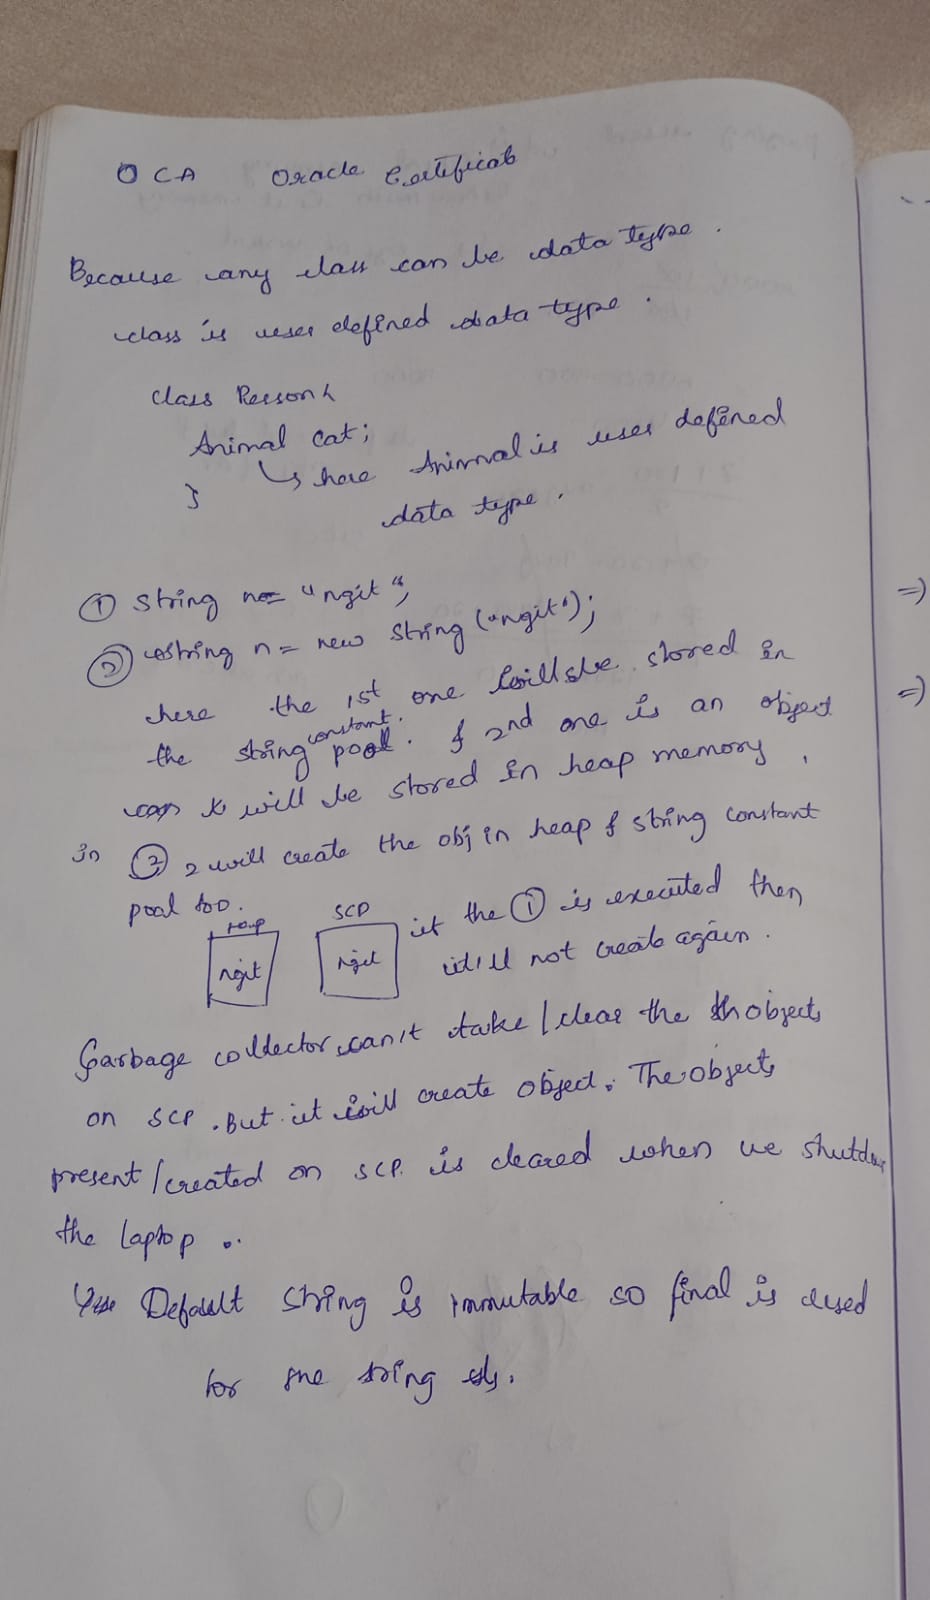 OCA Oracle Certificat
Because any class can be data type.
class is user defined data type.
class Person {
Animal cat;
}
↳ here Animal is user defined
data type.
① String n = "ngit";
② String n = new String ("ngit");
here the 1st one will be stored in
the string constant pool. & 2nd one is an object
will be stored in heap memory.
in ② 2 will create the obj in heap & string constant
pool too.
Heap
ngit
SCP
ngit
if the ① is executed then
it'll not create again.
Garbage collector can't take/clear the objects
on SCP. But it will create object. The objects
present/created on SCP. is cleared when we shutdown
the laptop.
Default String is immutable so final is used
for the string